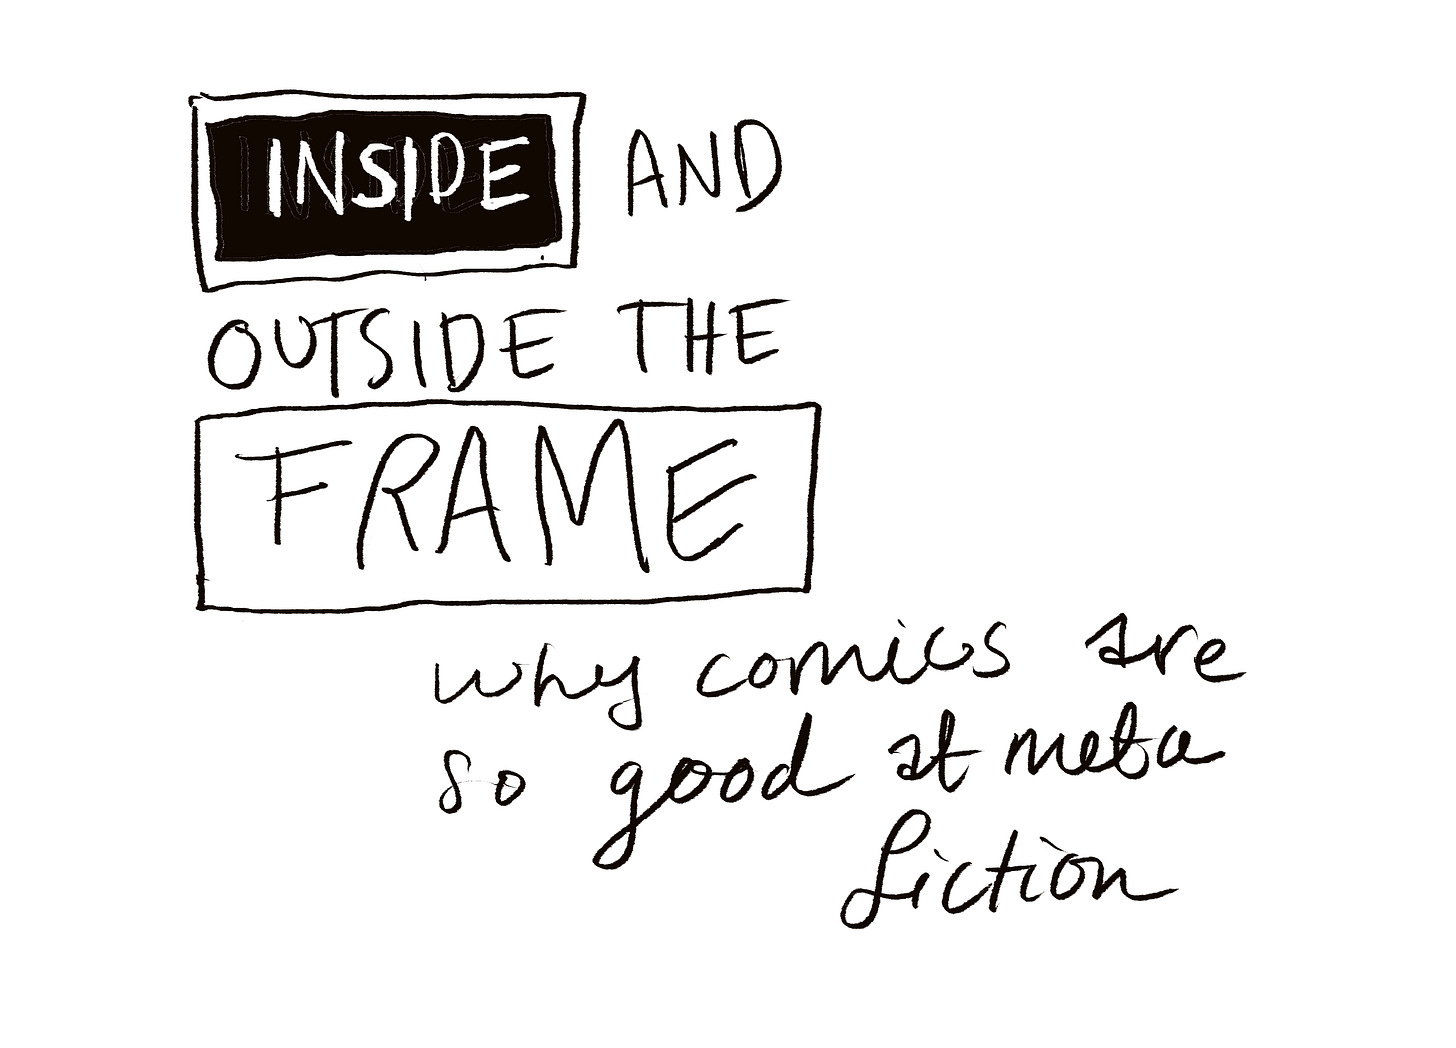 INSIDE AND
OUTSIDE THE
FRAME
why comics are
so good at meta
fiction